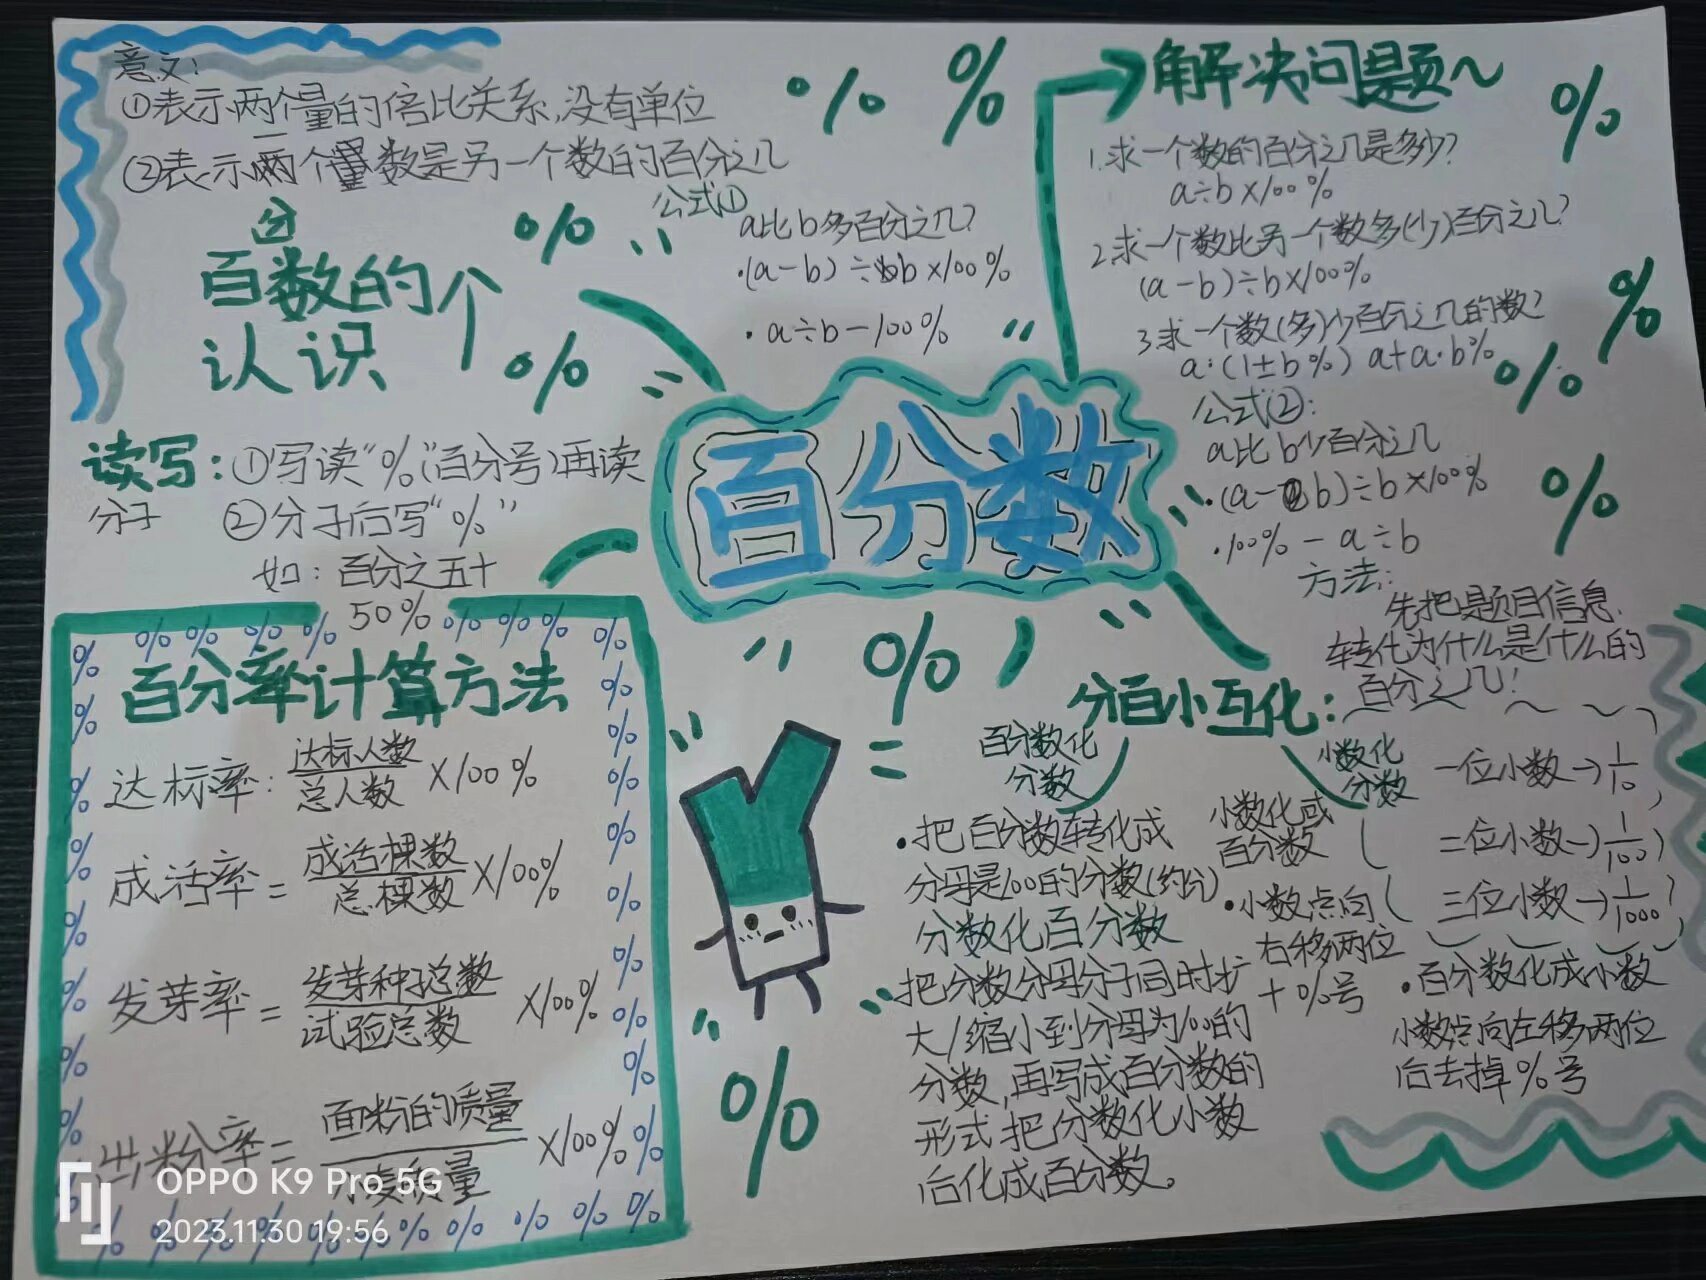 意义:
①表示两个量的倍比关系,没有单位
②表示两个量数是另一个数的百分之几
分
百数的个
认识
公式①
a比b多百分之几?
·(a-b)÷b×100%
·a÷b-100%
解决问题~
1.求一个数的百分之几是多少?
a÷b×100%
2.求一个数比另一个数多(少)百分之几?
(a-b)÷b×100%
3.求一个数(多)少百分之几的数?
a·(1±b%) a+a·b%
公式②:
a比b少百分之几
·(a-b)÷b×100%
·100%-a÷b
方法:
先把题目信息
转化为什么是什么的
百分之几!
百分数
读写:①写读"%"(百分号)再读
分子 ②分子后写"%"
如:百分之五十
50%
百分率计算方法
达标率:达标人数/总人数×100%
成活率=成活棵数/总棵数×100%
发芽率=发芽种子总数/试验总数×100%
出粉率=面粉的质量/小麦质量×100%
分百小互化:
百分数化
分数
·把百分数转化成
分母是100的分数(约分)
分数化百分数
把分数分母分子同时扩
大/缩小到分母为100的
分数,再写成百分数的
形式把分数化小数
后化成百分数。
小数化
分数
一位小数→1/10
二位小数→1/100
三位小数→1/1000
小数化或
百分数
·小数点向
右移两位
+%号
·百分数化成小数
小数点向左移两位
后去掉%号
OPPO K9 Pro 5G
2023.11.30 19:56